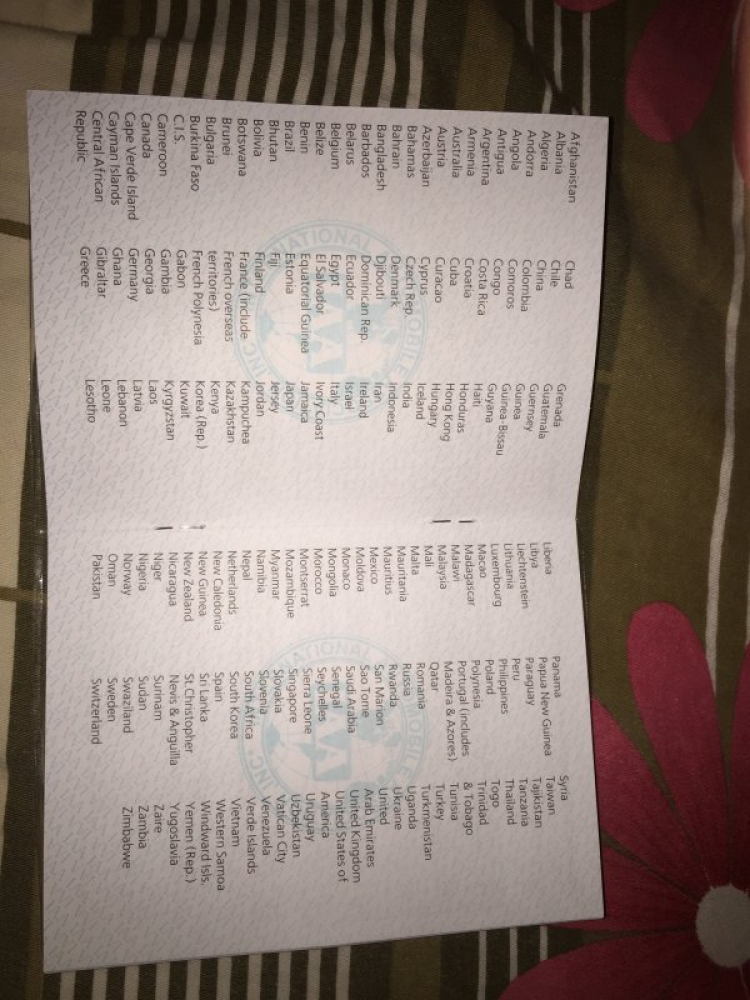 Afghanistan
Albania
Algeria
Andorra
Angola
Antigua
Argentina
Armenia
Australia
Austria
Azerbaijan
Bahamas
Bahrain
Bangladesh
Barbados
Belarus
Belgium
Belize
Benin
Brazil
Bhutan
Bolivia
Botswana
Brunei
Bulgaria
Burkina Faso
C.I.S.
Cameroon
Canada
Cape Verde Island
Cayman Islands
Central African
Republic
Chad
Chile
China
Colombia
Comoros
Congo
Costa Rica
Croatia
Cuba
Curacao
Cyprus
Czech Rep.
Denmark
Djibouti
Dominican Rep.
Ecuador
Egypt
El Salvador
Equatorial Guinea
Estonia
Fiji
Finland
France (include
French overseas
territories)
French Polynesia
Gabon
Gambia
Georgia
Germany
Ghana
Gibraltar
Greece
Grenada
Guatemala
Guernsey
Guinea
Guinea-Bissau
Guyana
Haiti
Honduras
Hong Kong
Hungary
Iceland
India
Indonesia
Iran
Ireland
Israel
Italy
Ivory Coast
Jamaica
Japan
Jersey
Jordan
Kampuchea
Kazakhstan
Kenya
Korea (Rep.)
Kuwait
Kyrgyzstan
Laos
Latvia
Lebanon
Leone
Lesotho
Liberia
Libya
Liechtenstein
Lithuania
Luxembourg
Macao
Madagascar
Malawi
Malaysia
Mali
Malta
Mauritania
Mauritius
Mexico
Moldova
Monaco
Mongolia
Morocco
Montserrat
Mozambique
Myanmar
Namibia
Nepal
Netherlands
New Caledonia
New Guinea
New Zealand
Nicaragua
Niger
Nigeria
Norway
Oman
Pakistan
Panama
Papua New Guinea
Paraguay
Peru
Philippines
Poland
Polynesia
Portugal (includes
Madeira & Azores)
Qatar
Romania
Russia
Rwanda
San Marion
Sao Tome
Saudi Arabia
Senegal
Seychelles
Sierra Leone
Singapore
Slovakia
Slovenia
South Africa
South Korea
Spain
Sri Lanka
St.Christopher
Nevis & Anguilla
Surinam
Sudan
Swaziland
Sweden
Switzerland
Syria
Taiwan
Tajikistan
Tanzania
Thailand
Togo
Trinidad
& Tobago
Tunisia
Turkey
Turkmenistan
Uganda
Ukraine
United
Arab Emirates
United Kingdom
United States of
America
Uruguay
Uzbekistan
Vatican City
Venezuela
Verde Islands
Vietnam
Western Samoa
Windward Isls.
Yemen (Rep.)
Yugoslavia
Zaire
Zambia
Zimbabwe